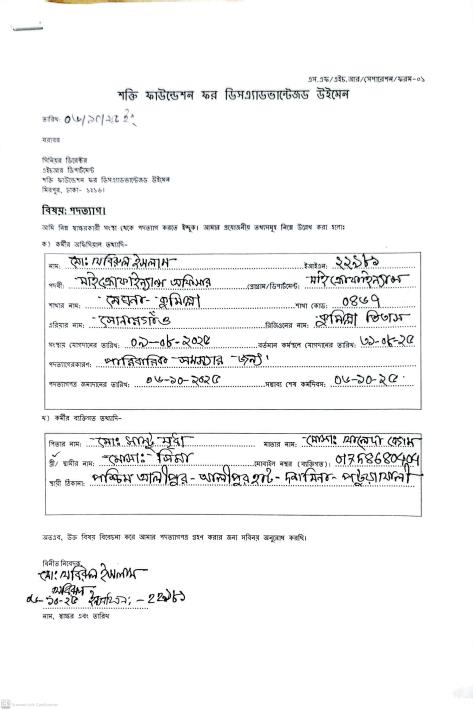 এস.এফ/এইচ.আর/সেপারেশন/ফরম-০১
শক্তি ফাউন্ডেশন ফর ডিসএ্যাডভান্টেজড উইমেন
তারিখ: ০৬/১০/২৫ ইং
বরাবর
সিনিয়র ডিরেক্টর
এইচআর ডিপার্টমেন্ট
শক্তি ফাউন্ডেশন ফর ডিসএ্যাডভান্টেজড উইমেন
মিরপুর, ঢাকা- ১২১৬।
বিষয়: পদত্যাগ।
আমি নিম্ন স্বাক্ষরকারী সংস্থা থেকে পদত্যাগ করতে ইচ্ছুক। আমার প্রয়োজনীয় তথ্যসমূহ নিম্নে উল্লেখ করা হলোঃ
ক) কর্মীর অফিসিয়াল তথ্যাদি-
নাম: মোঃ খবিরুল ইসলাম ইআইএন: ২২৯৮১
পদবী: মাইক্রোফাইন্যান্স অফিসার প্রোগ্রাম/ডিপার্টমেন্ট: মাইক্রোফাইন্যান্স
শাখার নাম: মেঘনা- কুমিল্লা শাখা কোড: ০৪৬৭
এরিয়ার নাম: সোনারগাঁও রিজিওনের নাম: কুমিল্লা তিতাস
সংস্থায় যোগদানের তারিখ: ০৯-০৮-২০২৫ বর্তমান কর্মস্থলে যোগদানের তারিখ: ৩১-০৮-২৫
পদত্যাগেরকারণ: পারিবারিক সমস্যার জন্য।
পদত্যাগপত্র জমাদানের তারিখ: ০৬-১০-২০২৫ সম্ভাব্য শেষ কর্মদিবস: ০৬-১০-২৫
খ) কর্মীর ব্যক্তিগত তথ্যাদি-
পিতার নাম: মোঃ সানু মৃধা মাতার নাম: মোসাঃ খালেদা বেগম
স্ত্রী/ স্বামীর নাম: মোসাঃ সিমা মোবাইল নম্বর (ব্যক্তিগত): 01768680404
স্থায়ী ঠিকানা: পশ্চিম আলীপুর- আলীপুরহাট- দশমিনা- পটুয়াখালী
অতএব, উক্ত বিষয় বিবেচনা করে আমার পদত্যাগপত্র গ্রহণ করার জন্য সবিনয় অনুরোধ করছি।
বিনীত নিবেদক
মোঃ খবিরুল ইসলাম
খবিরুল
০৬-১০-২৫ ইআইএন: - ২২৯৮১
নাম, স্বাক্ষর এবং তারিখ